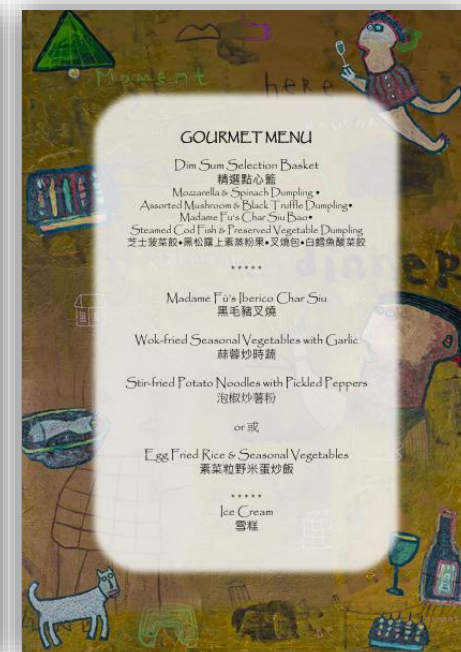 Moment
here
GOURMET MENU
Dim Sum Selection Basket
精選點心籃
Mozzarella & Spinach Dumpling •
Assorted Mushroom & Black Truffle Dumpling•
Madame Fu's Char Siu Bao•
Steamed Cod Fish & Preserved Vegetable Dumpling
芝士菠菜餃•黑松露上素蒸粉果•叉燒包•白鱈魚酸菜餃
*****
Madame Fù's Iberico Char Siu
黑毛豬叉燒
Wok-fried Seasonal Vegetables with Garlic
蒜蓉炒時蔬
Stir-fried Potato Noodles with Pickled Peppers
泡椒炒薯粉
or 或
Egg Fried Rice & Seasonal Vegetables
素菜粒野米蛋炒飯
*****
Ice Cream
雪糕